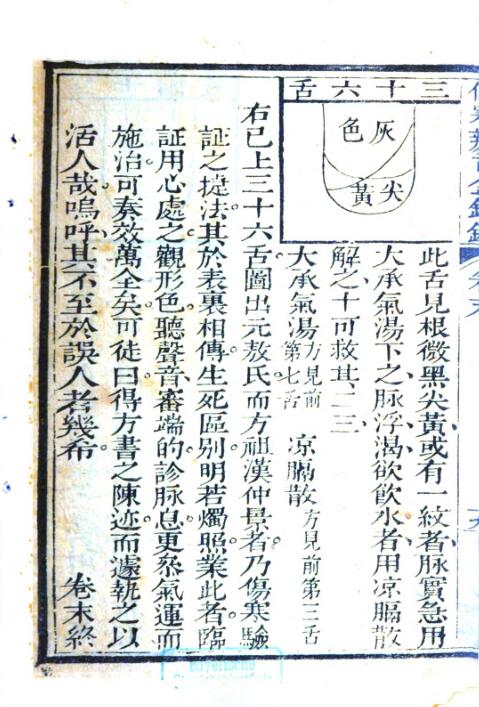 三十六舌
灰色
尖黃
此舌見根微黑尖黃或有一紋者脉實急用
大承氣湯下之脉浮渴欲飲水者用凉膈散
解之十可救其二三
大承氣湯方見前第七舌 凉膈散方見前第三舌
右已上三十六舌圖出元敖氏而方祖漢仲景者乃傷寒驗
証之捷法其於表裏相傳生死區别明若燭照業此者臨
証用心處之觀形色聽聲音審端的診脉息更叅氣運而
施治可奏效萬全矣可徒曰得方書之陳迹而遽執之以
活人哉嗚呼其不至於誤人者幾希 卷末終